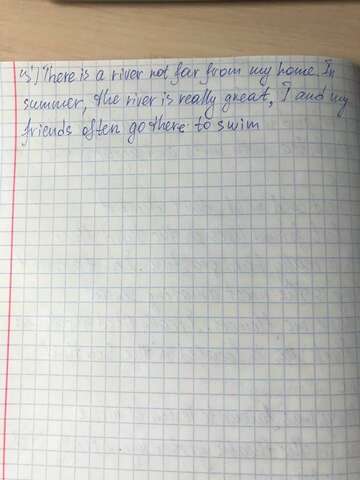 3) There is a river not far from my home. In
summer, the river is really great, I and my
friends often go there to swim